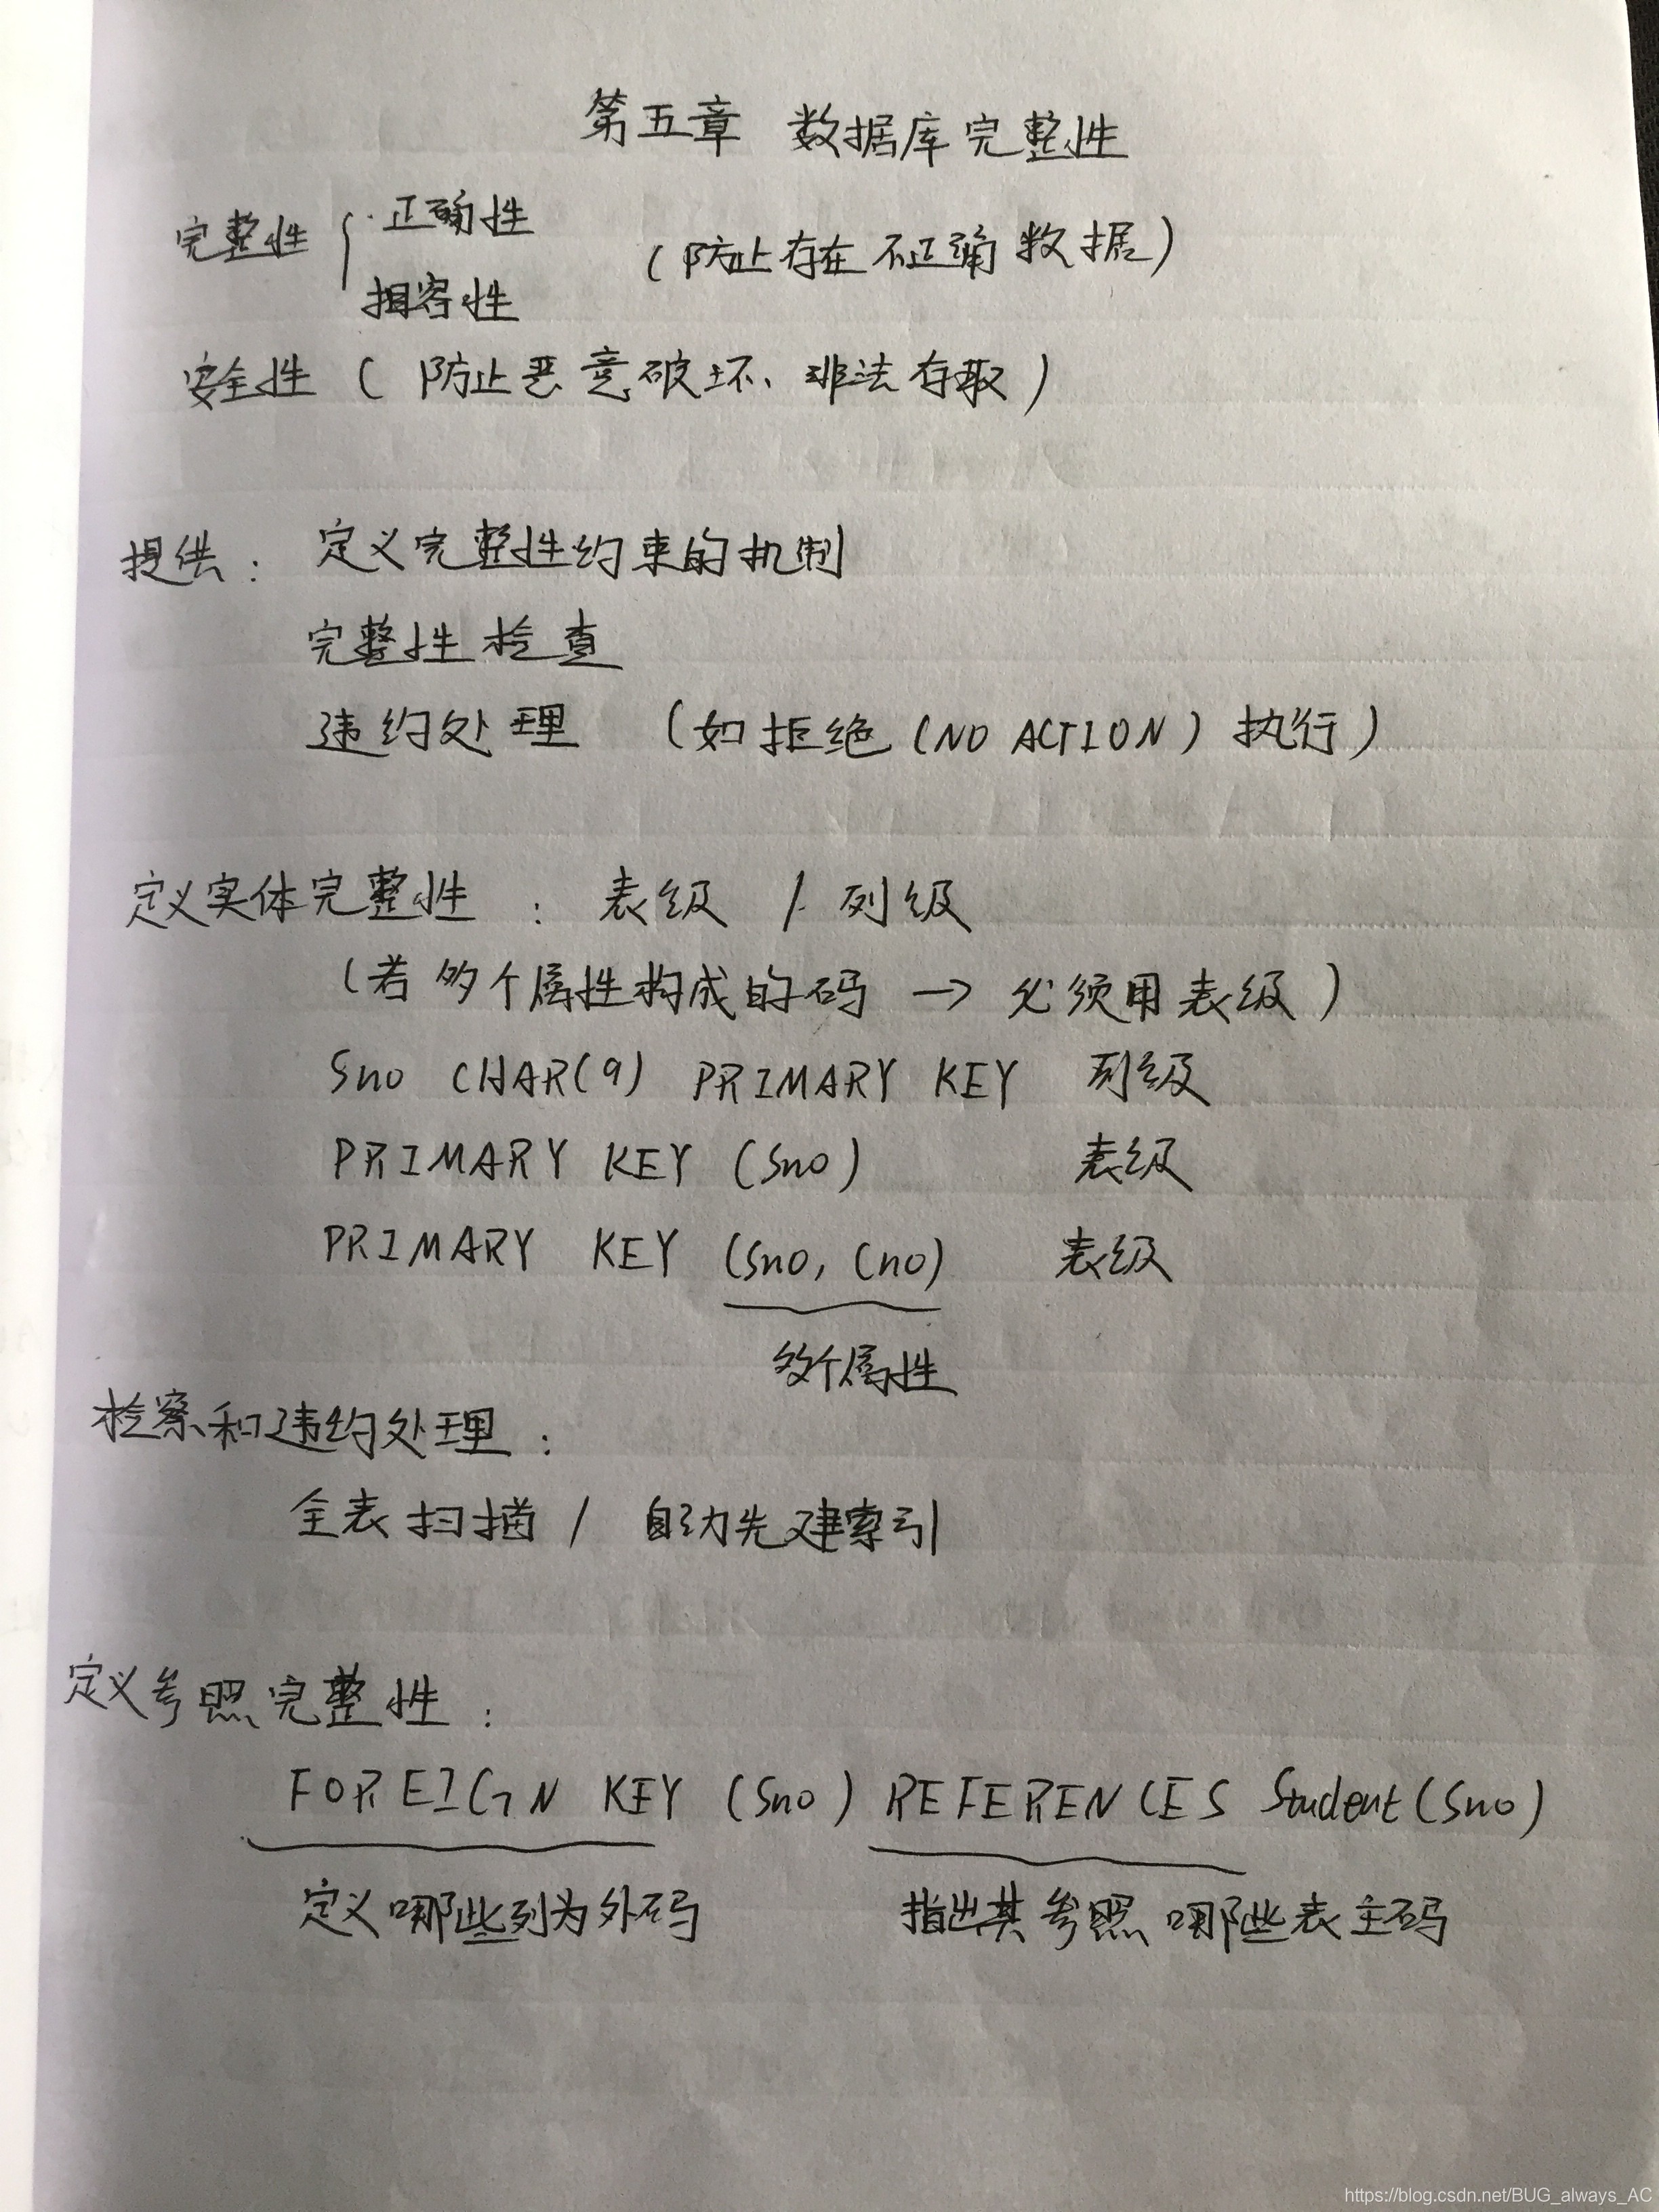 第五章 数据库完整性
完整性 { 正确性
相容性
(防止存在不正确数据)
安全性 ( 防止恶意破坏、非法存取 )
提供: 定义完整性约束的机制
完整性检查
违约处理 (如拒绝 (NO ACTION) 执行)
定义实体完整性 : 表级 / 列级
(若多个属性构成的码 → 必须用表级 )
Sno CHAR(9) PRIMARY KEY 列级
PRIMARY KEY (Sno) 表级
PRIMARY KEY (Sno, Cno) 表级
多个属性
检察和违约处理 :
全表扫描 / 自动先建索引
定义参照完整性 :
FOREIGN KEY (Sno) REFERENCES Student(Sno)
定义哪些列为外码 指出其参照哪些表主码
https://blog.csdn.net/BUG_always_AC